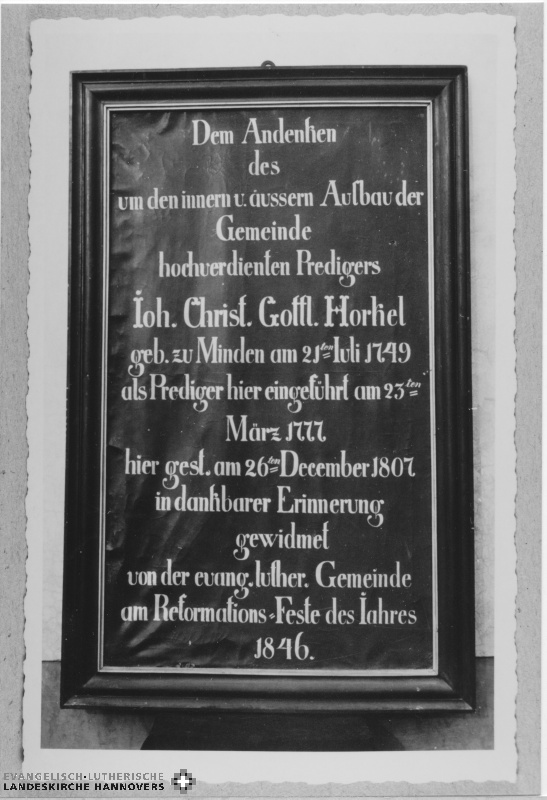 Dem Andenken
des
um den innern u. äussern Aufbau der
Gemeinde
hochverdienten Predigers
Ioh. Christ. Gottl. Horkel
geb. zu Minden am 21ten Iuli 1749
als Prediger hier eingeführt am 23ten
März 1777
hier gest. am 26ten December 1807
in dankbarer Erinnerung
gewidmet
von der evang. luther. Gemeinde
am Reformations-Feste des Iahres
1846.
EVANGELISCH-LUTHERISCHE
LANDESKIRCHE HANNOVERS